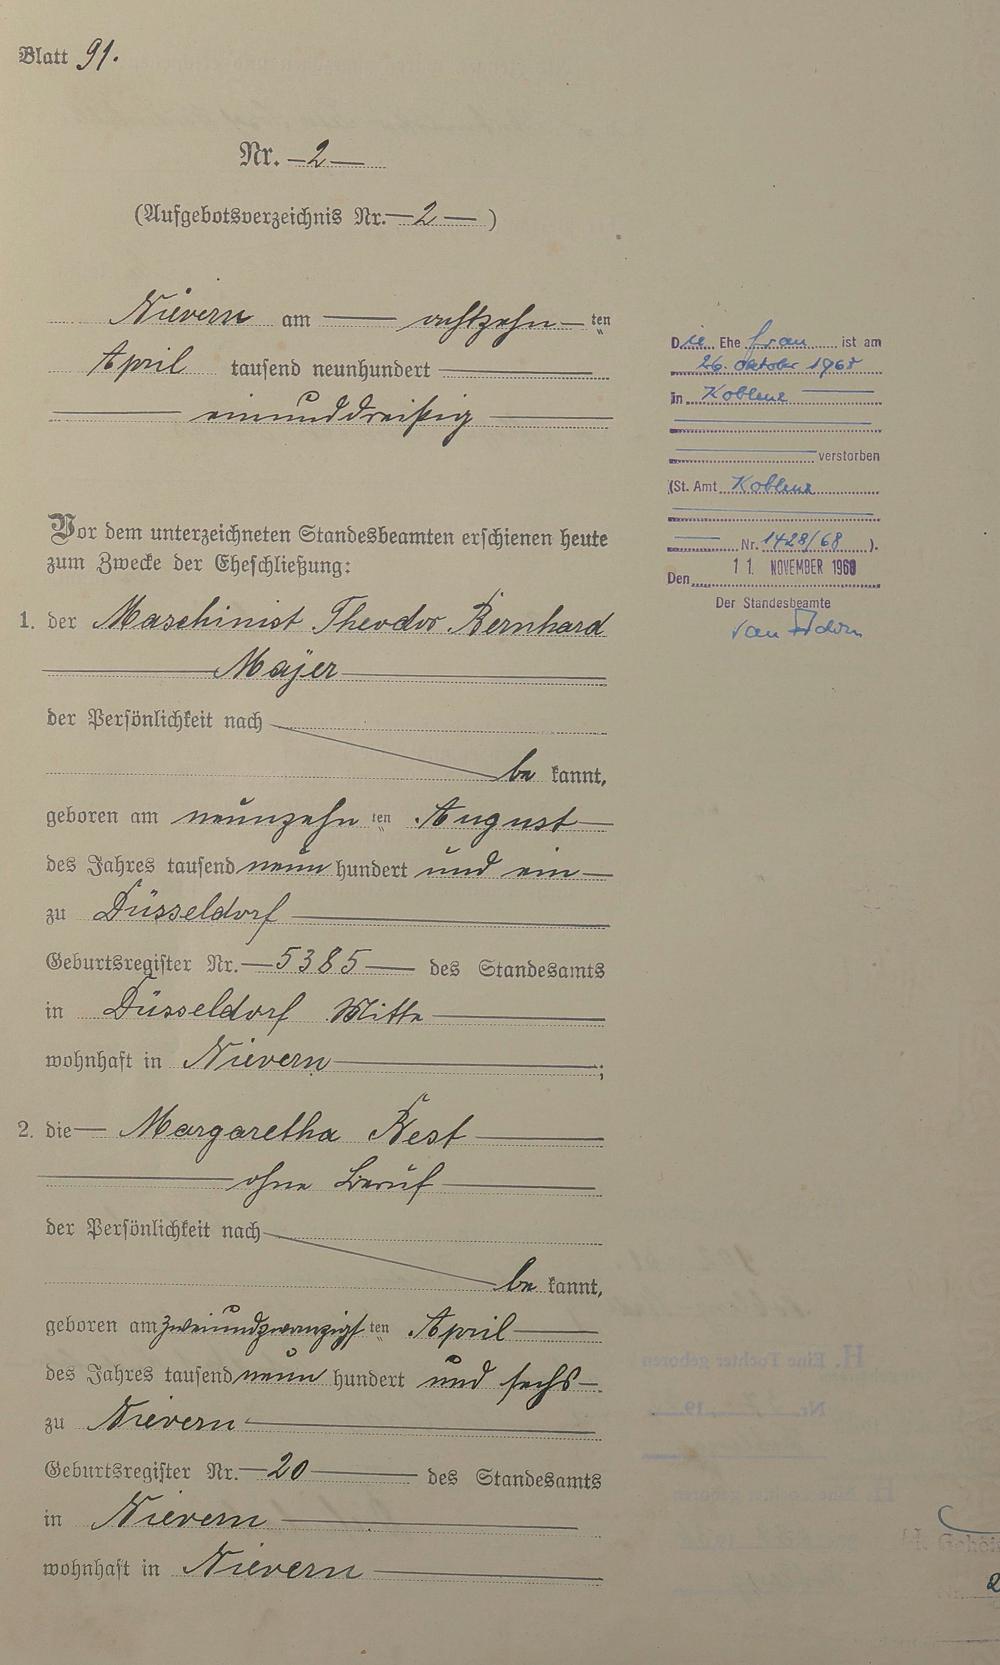 Blatt 91.
Nr. 2
(Aufgebotsverzeichnis Nr. 2 )
Nievern am achtzehn ten
April tausend neunhundert
einunddreißig
Vor dem unterzeichneten Standesbeamten erschienen heute
zum Zwecke der Eheschließung:
1. der Maschinist Theodor Bernhard
Mayer
der Persönlichkeit nach
be kannt,
geboren am neunzehn ten August
des Jahres tausend neun hundert und ein
zu Düsseldorf
Geburtsregister Nr. 5385 des Standesamts
in Düsseldorf Mitte
wohnhaft in Nievern ;
2. die Margaretha Best
ohne Beruf
der Persönlichkeit nach
be kannt,
geboren am zweiundzwanzigst ten April
des Jahres tausend neun hundert und sechs
zu Nievern
Geburtsregister Nr. 20 des Standesamts
in Nievern
wohnhaft in Nievern
Die Ehe frau ist am
26. Oktober 1968
in Koblenz
verstorben
(St. Amt Koblenz
Nr. 1428/68 ).
Den 11. NOVEMBER 1968
Der Standesbeamte